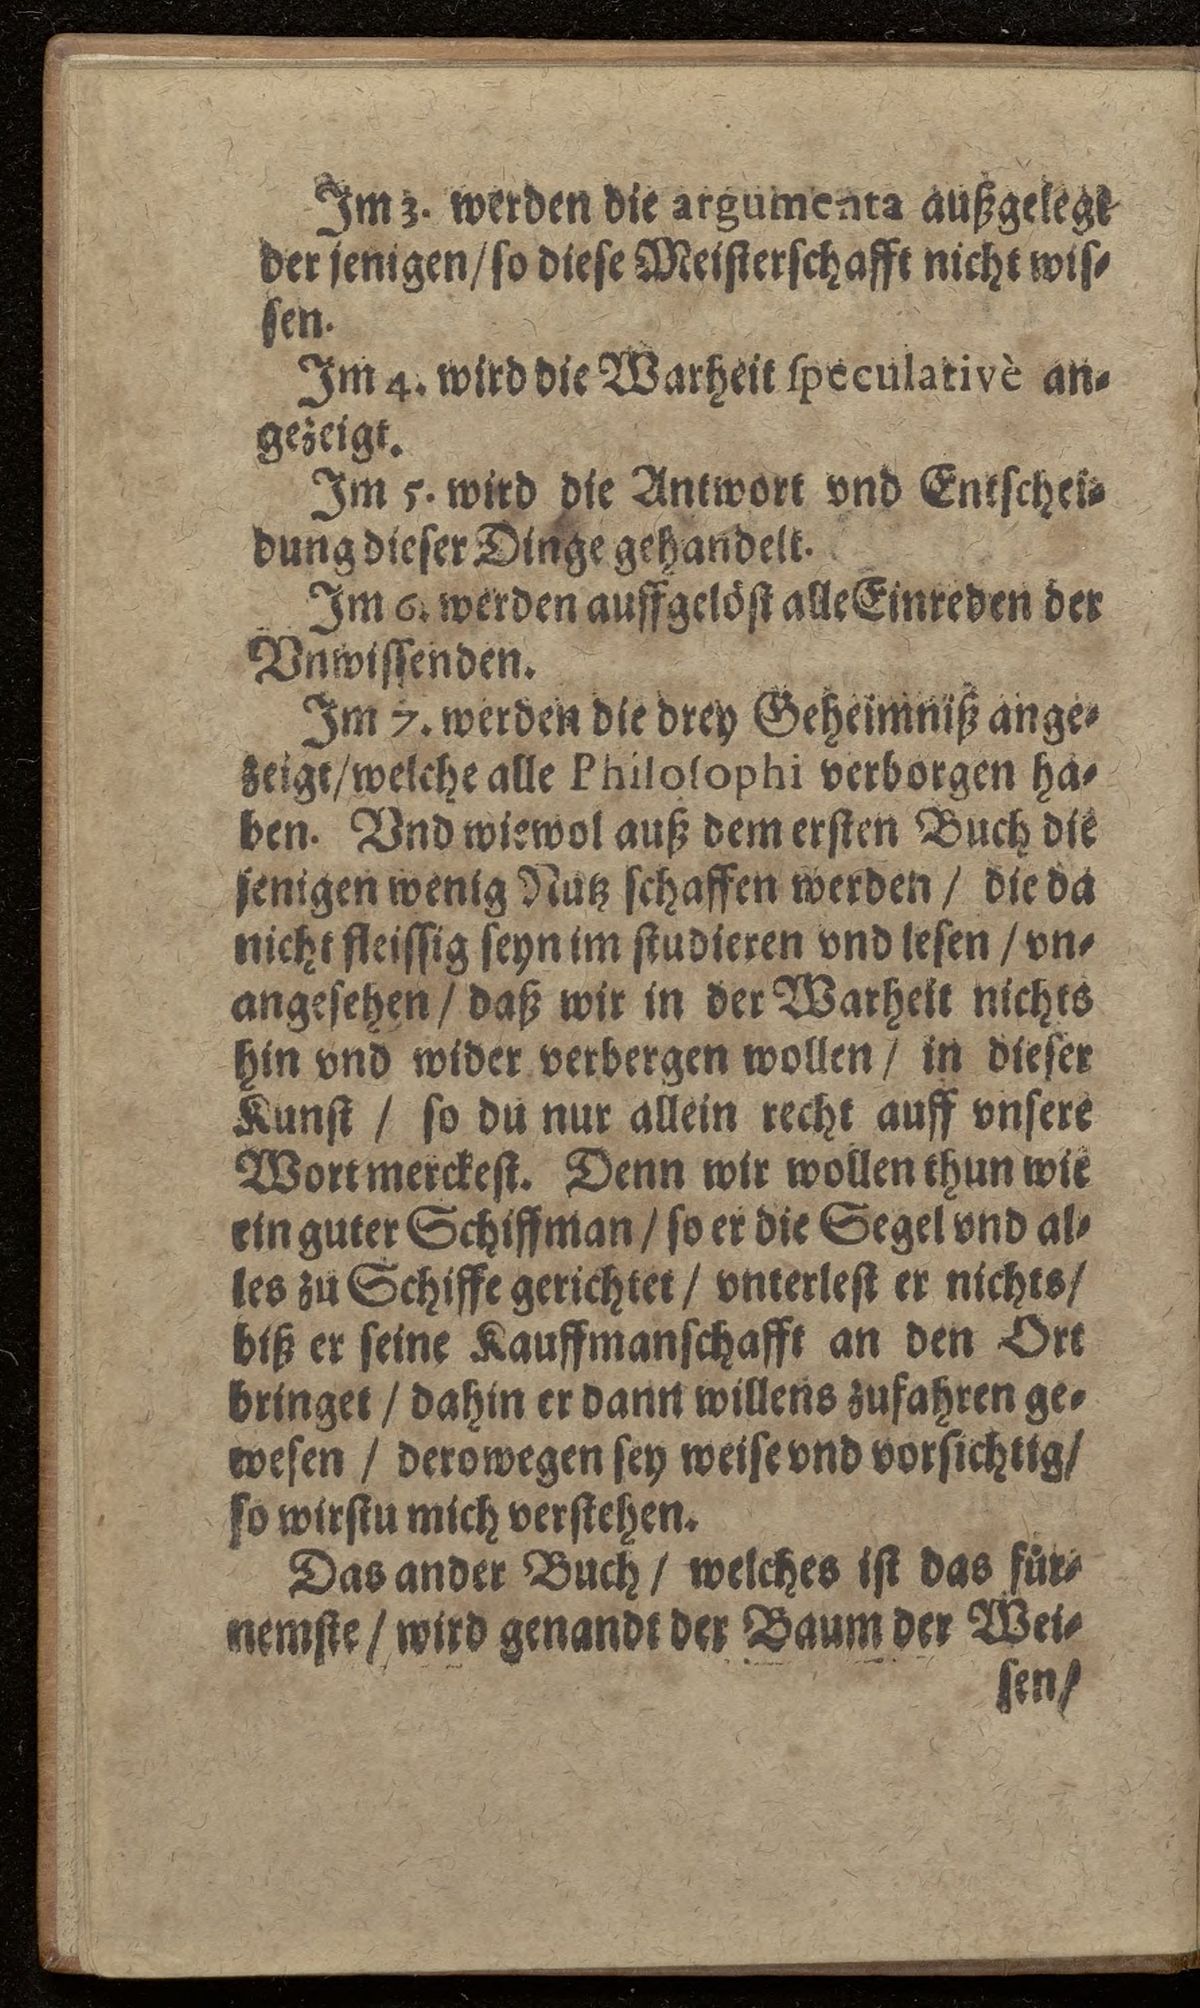 Im 3. werden die argumenta außgelegt
der jenigen/so diese Meisterschafft nicht wis-
sen.
Im 4. wird die Warheit speculativè an-
gezeigt.
Im 5. wird die Antwort vnd Entschei-
dung dieser Dinge gehandelt.
Im 6. werden auffgelöst alle Einreden der
Vnwissenden.
Im 7. werden die drey Geheimniß ange-
zeigt/welche alle Philosophi verborgen ha-
ben. Vnd wiewol auß dem ersten Buch die
jenigen wenig Nutz schaffen werden / die da
nicht fleissig seyn im studieren vnd lesen / vn-
angesehen / daß wir in der Warheit nichts
hin vnd wider verbergen wollen / in dieser
Kunst / so du nur allein recht auff vnsere
Wort merckest. Denn wir wollen thun wie
ein guter Schiffman / so er die Segel vnd al-
les zu Schiffe gerichtet / vnterlest er nichts/
biß er seine Kauffmanschafft an den Ort
bringet / dahin er dann willens zufahren ge-
wesen / derowegen sey weise vnd vorsichtig/
so wirstu mich verstehen.
Das ander Buch / welches ist das für-
nemste / wird genandt der Baum der Wei-
sen/